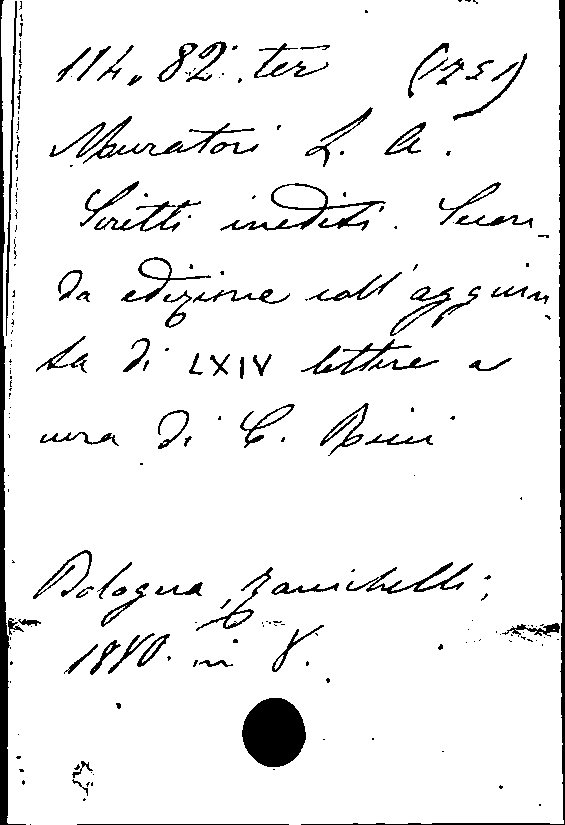 114. 82. ter (1251)
Muratori L. A.
Scritti inediti. Secon-
da edizione coll' aggiun-
ta di LXIV lettere a
cura di C. Ricci
Bologna, Zanichelli;
1880. in 8.